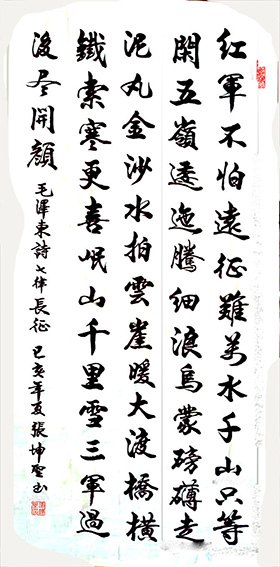 紅軍不怕遠征難萬水千山只等
閑五嶺逶迤騰細浪烏蒙磅礴走
泥丸金沙水拍雲崖暖大渡橋橫
鐵索寒更喜岷山千里雪三軍過
後尽開顏 毛澤東詩七律長征 己亥年夏張坤聖书